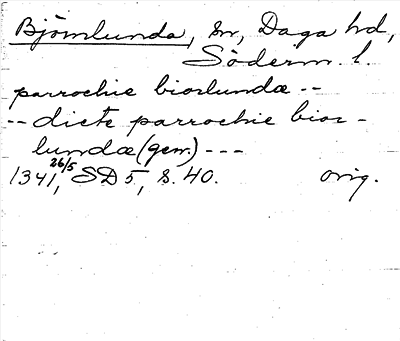 Björnlunda, sn, Daga hd,
Söderm. l.
parrochie biorlundæ --
-- dicte parrochie bior-
lundæ (gen.) ---
1341, 26/5, SD 5, s. 40. orig.